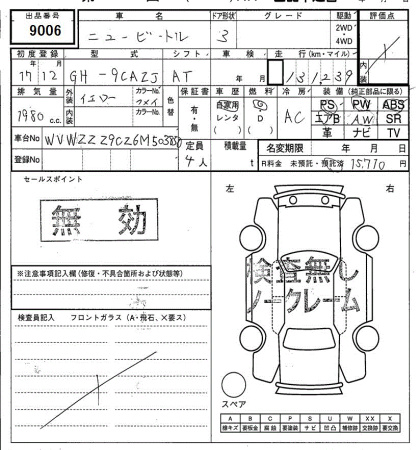 出品番号 車名 ドア形状 グレード 駆動 評価点
9006 ニュービートル 3 2WD・4WD
初度登録 型式 シフト 車検 走行(km・マイル) 内装
17年12月 GH-9CAZJ AT 年 月 131,239
排気量 外装 イエロー カラーNo. 色替 保証書 車歴 燃料 冷房 装備(純正部品に限る)
1980 c.c. 内装 カラーNo. 有・無 自家用 レンタ ( ) G D ( ) AC PS PW ABS
エアB AW SR
革 ナビ TV
車台No WVWZZZ9CZ6M503850 定員 4人 積載量 t 名変期限 年 月 日
登録No R料金 未預託・預託済 15,770円
セールスポイント
無効
左 右
検査無し
ノークレーム
※注意事項記入欄(修復・不具合箇所および状態等)
検査員記入 フロントガラス(A・飛石、X要ス)
スペア
A B C P S U W XX X
線キズ 要板金 腐蝕 要塗装 サビ 凹凸 補修跡 交換跡 要交換